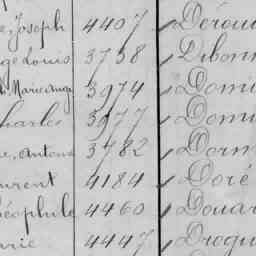 Joseph 4407 Dérou
ge Louis 3738 Dibon
Marie Ang 3974 Domi
Charles 3977 Domi
e, Antoine 3782 Dorm
urent 4184 Doré
éophile 4460 Douar
rie 4447 Drogu